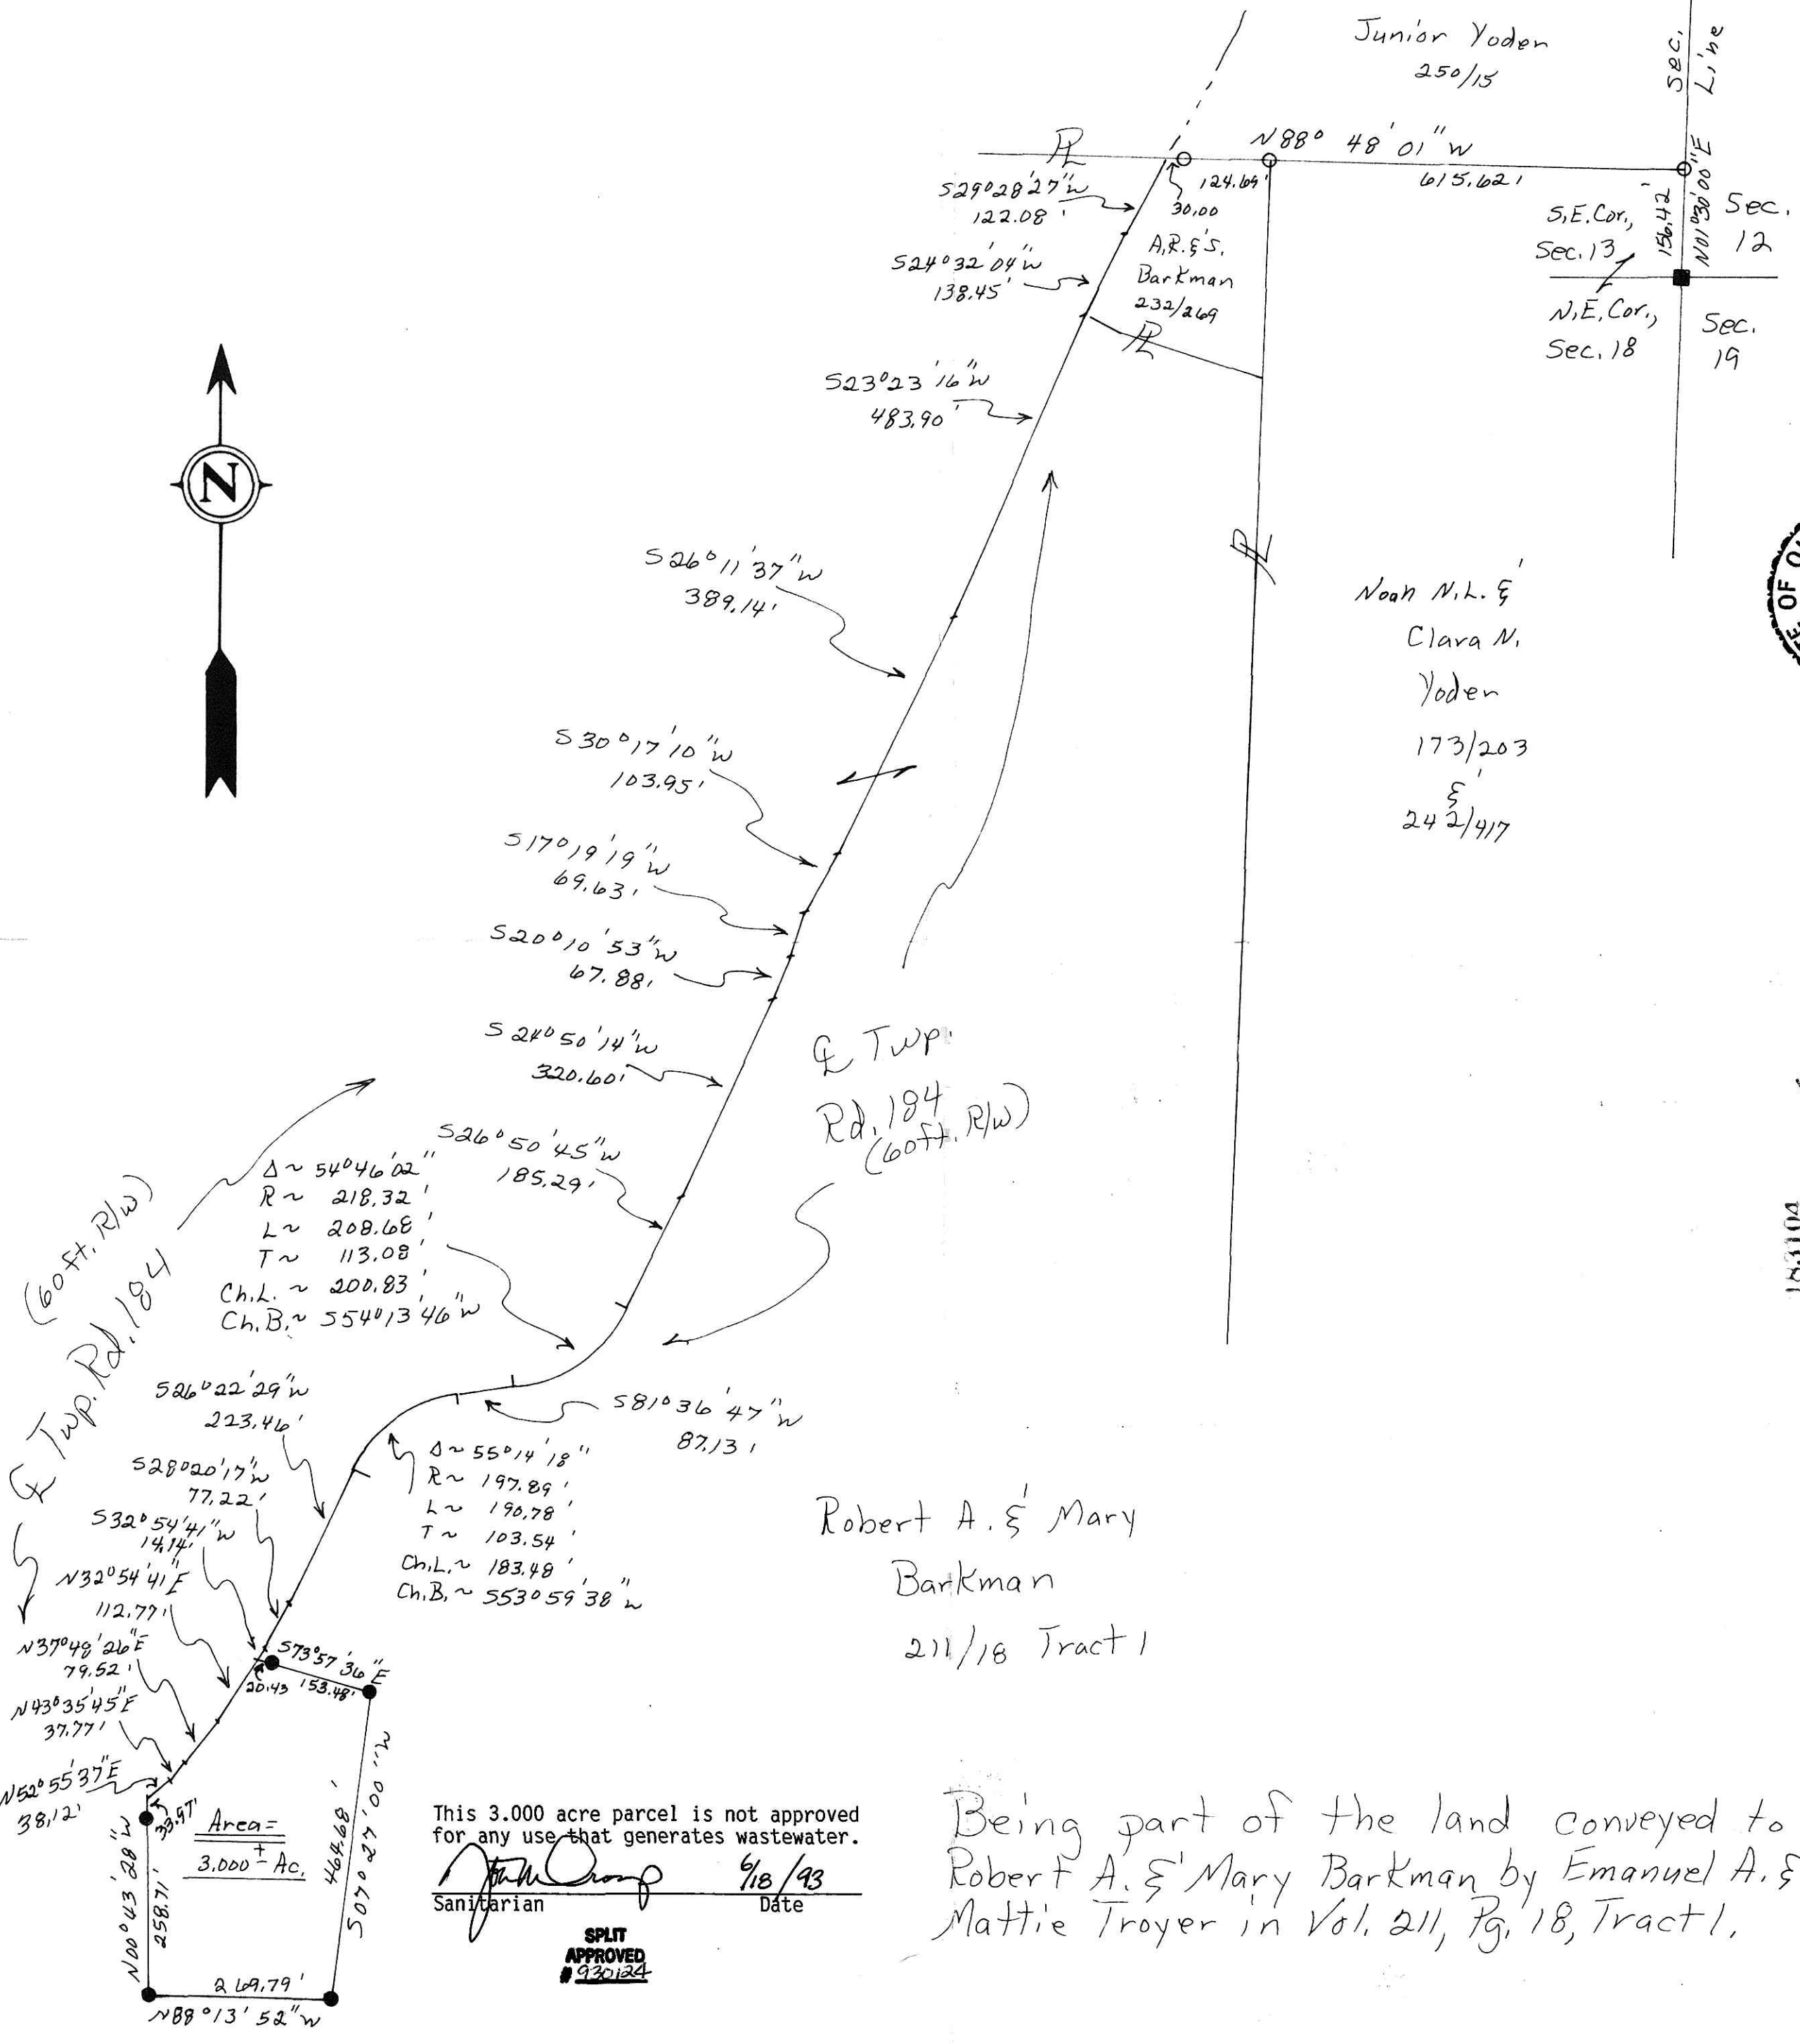 Junior Yoder
250/15
Sec.
Line
PL
N88° 48' 01" W
124.69'
615.62'
30.00
S29°28'27"W
122.08'
A.R.&S.
Barkman
232/269
S.E.Cor.,
Sec.13
156.42'
N01°30'00"E
Sec.
12
N.E.Cor.,
Sec.18
Sec.
19
S24°32'04"W
138.45'
PL
S23°23'16"W
483.90'
N
S26°11'37"W
389.14'
PL
Noah N.L. &
Clara N.
Yoder
173/203
&
242/417
OF
S30°17'10"W
103.95'
S17°19'19"W
69.63'
S20°10'53"W
67.88'
S24°50'14"W
320.60'
℄ Twp.
Rd. 184
(60ft. R/W)
S26°50'45"W
185.29'
Δ~ 54°46'02"
R~ 218.32'
L~ 208.68'
T~ 113.08'
Ch.L.~ 200.83'
Ch.B.~ S54°13'46"W
(60ft. R/W)
℄ Twp. Rd. 184
183104
S26°22'29"W
223.46'
S81°36'47"W
87.13'
Δ~ 55°14'18"
R~ 197.89'
L~ 190.78'
T~ 103.54'
Ch.L.~ 183.48'
Ch.B.~ S53°59'38"W
S28°20'17"W
77.22'
S32°54'41"W
14.14'
N32°54'41"E
112.77'
N37°48'26"E
79.52'
N43°35'45"E
37.77'
N52°55'37"E
38.12'
S73°57'36"E
20.43 153.48'
Robert A. & Mary
Barkman
211/18 Tract 1
33.97'
Area=
3.000 ± Ac.
N00°43'28"W
258.71'
464.68'
S07°27'00"W
269.79'
N88°13'52"W
This 3.000 acre parcel is not approved
for any use that generates wastewater.
6/18/93
Sanitarian Date
SPLIT
APPROVED
# 930124
Being part of the land conveyed to
Robert A. & Mary Barkman by Emanuel A. &
Mattie Troyer in Vol. 211, Pg. 18, Tract 1.